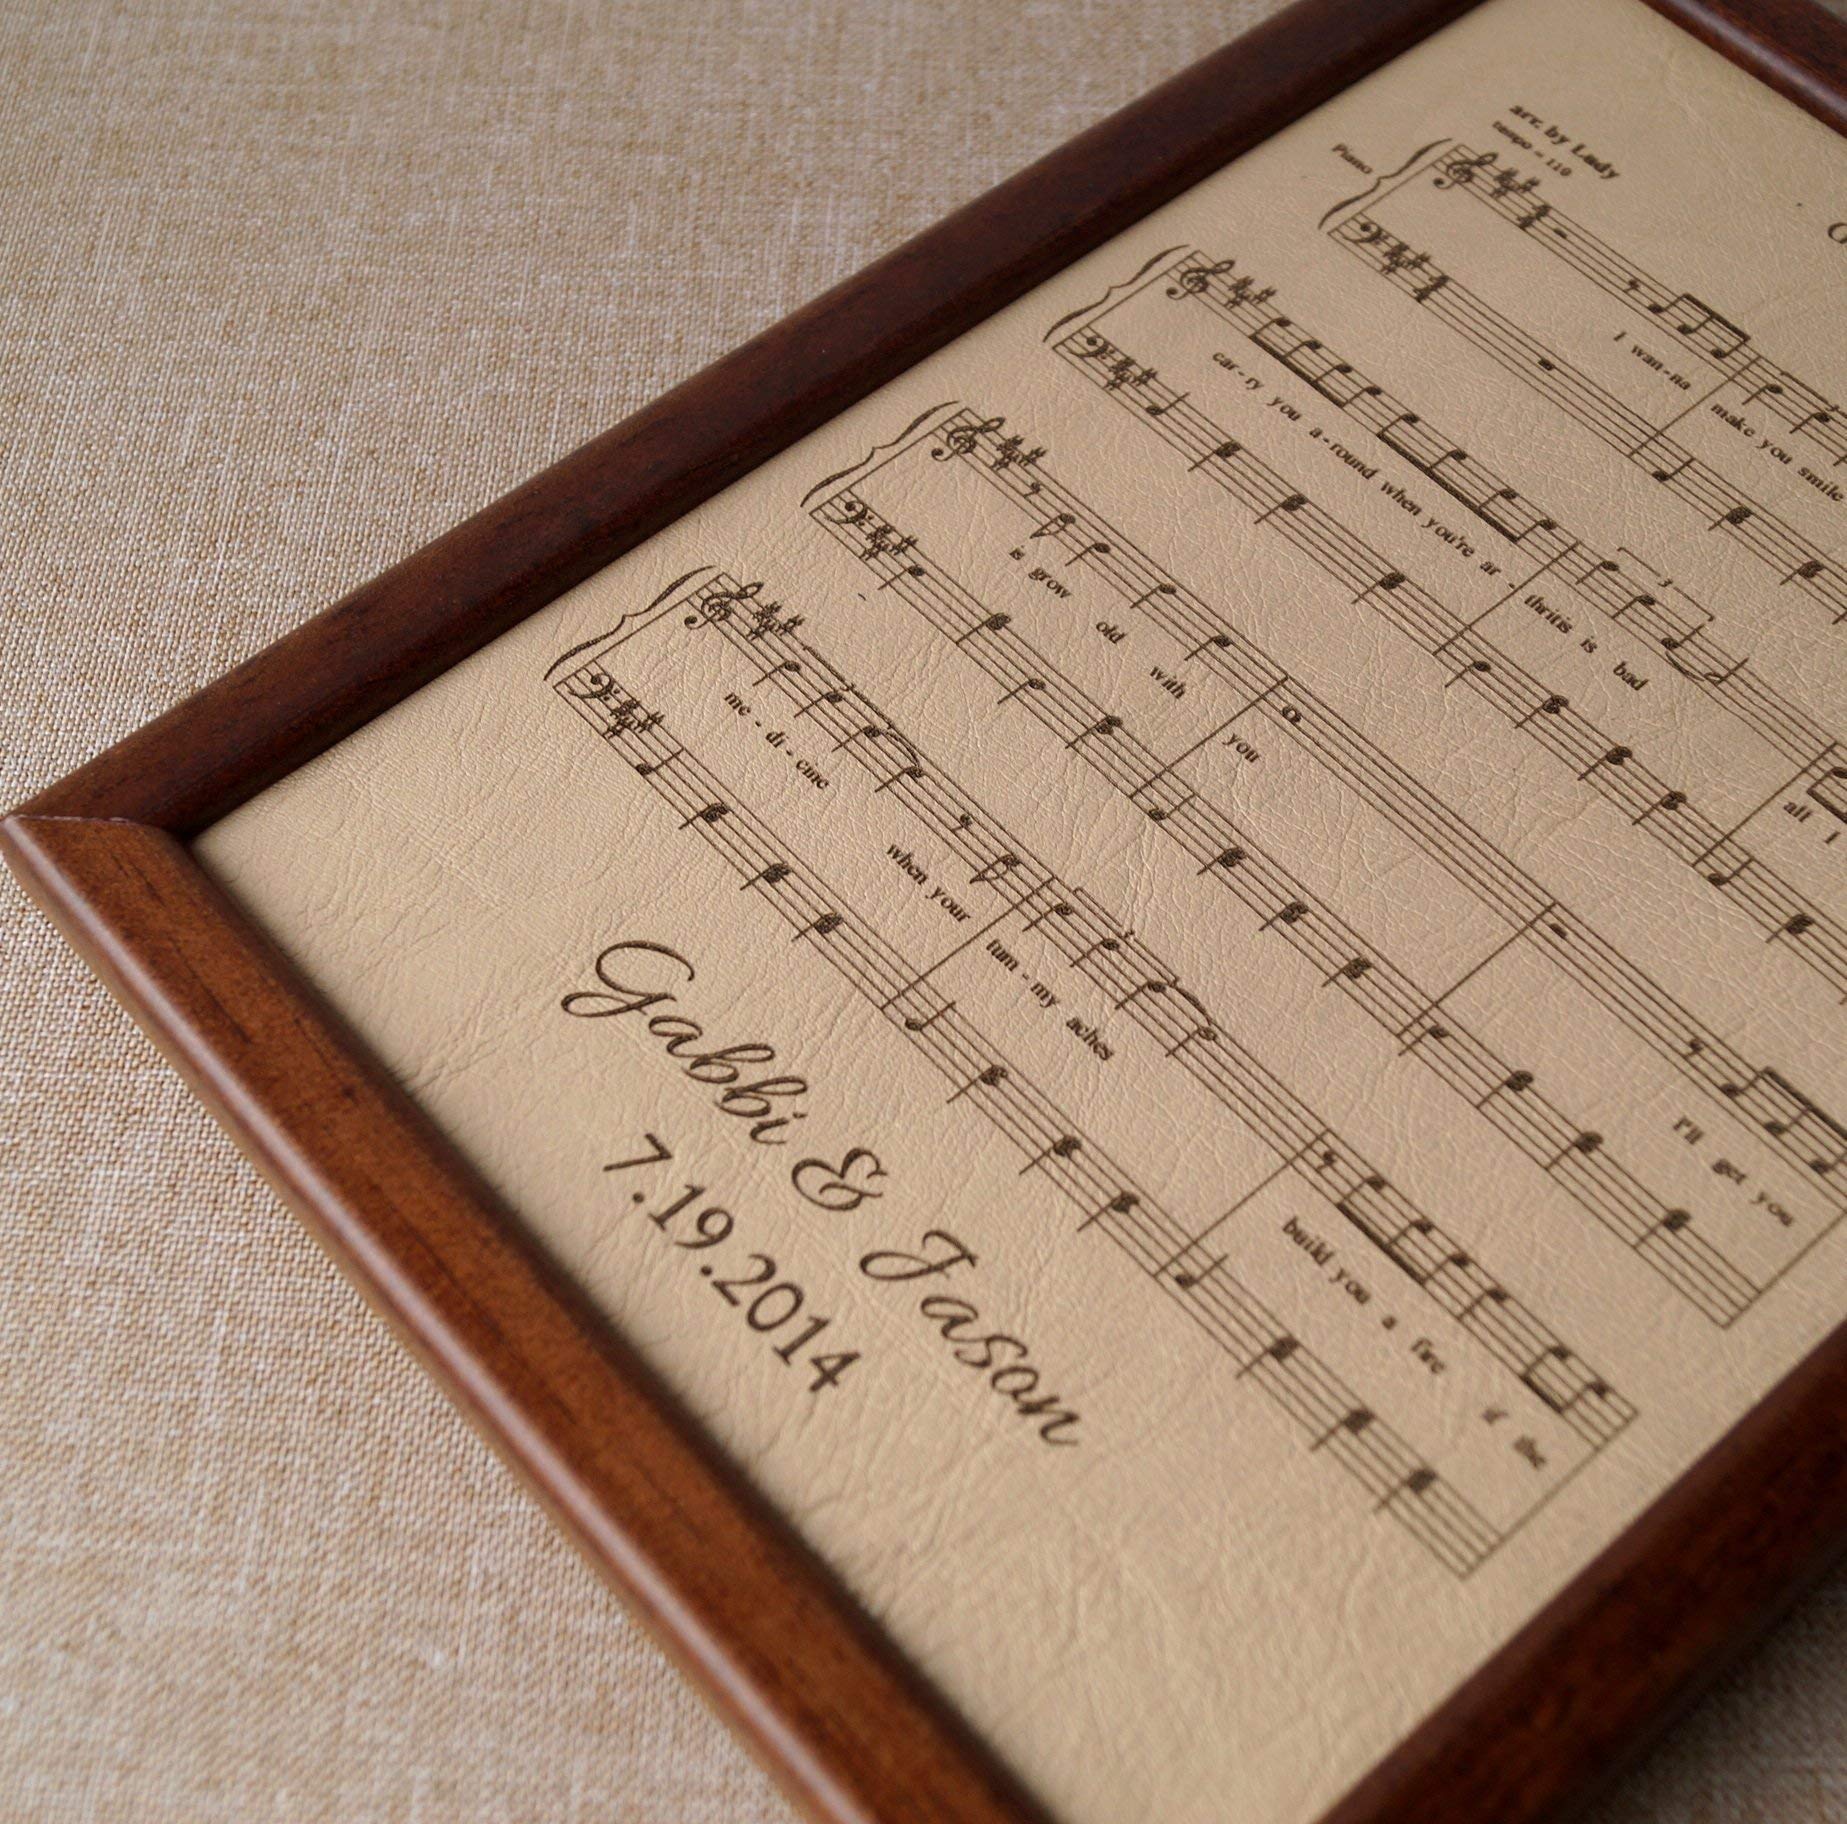 arr. by Ludy
tempo = 110
Piano
I wan - na make you smile
car - ry you a - round when you're ar - thritis is bad
3
all I
is grow old with you
I'll get you
me - di - cine when your tum - my aches
3
build you a fire if the
Gabbi & Jason
7.19.2014